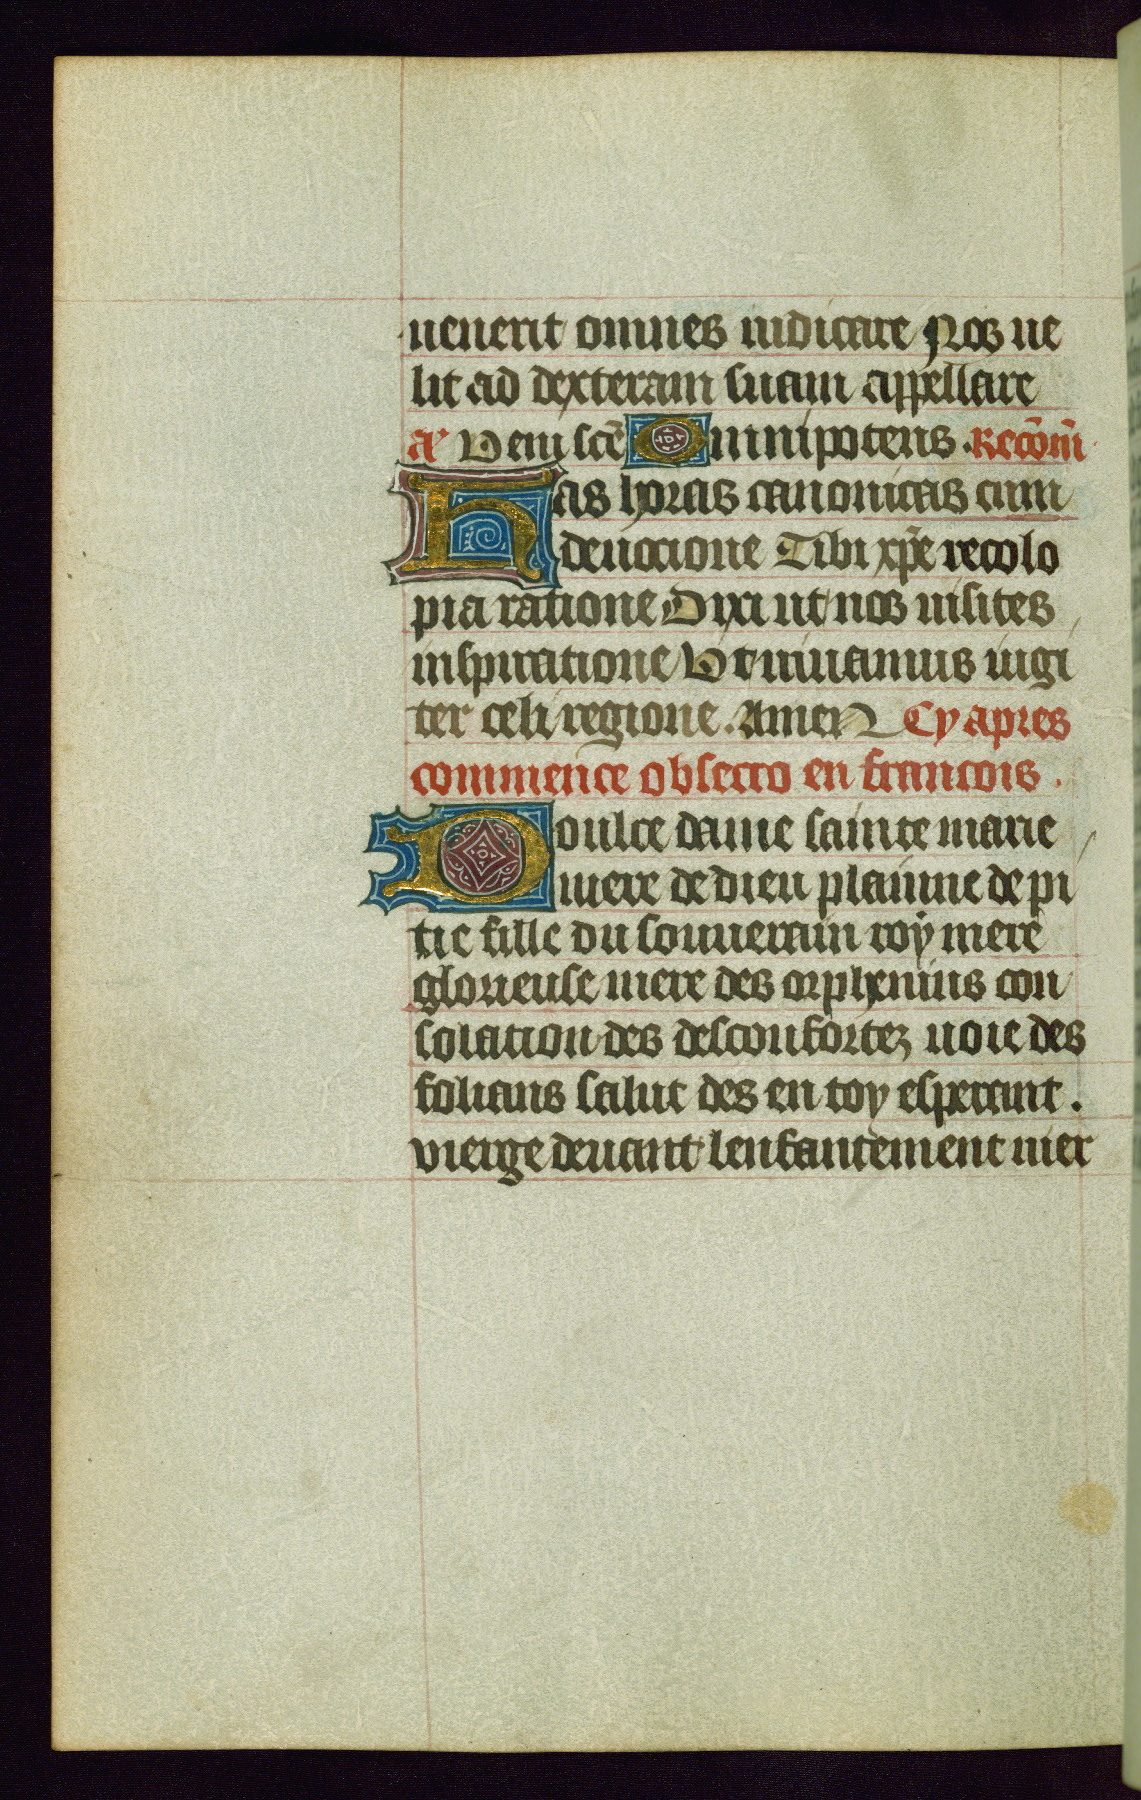 uenerit omnes iudicare Nos ue
lit ad dexteram suam appellare
a᷑ Veni sc̄e Omnipotens. Recōm̄
Has horas canonicas cum
deuocione Tibi xp̄e recolo
pia ratione Dixi ut nos uisites
inspiratione Vt uiuamus iugi
ter celi regione. Amen Cy apres
commence obsecro en francois.
Doulce dame sainte marie
mere de dieu plainne de pi
tie fille du souuerain roy mere
glorieuse mere des orphenins con
solation des desconfortez uoie des
folians salut des en toy esperant.
vierge deuant lenfantement vier